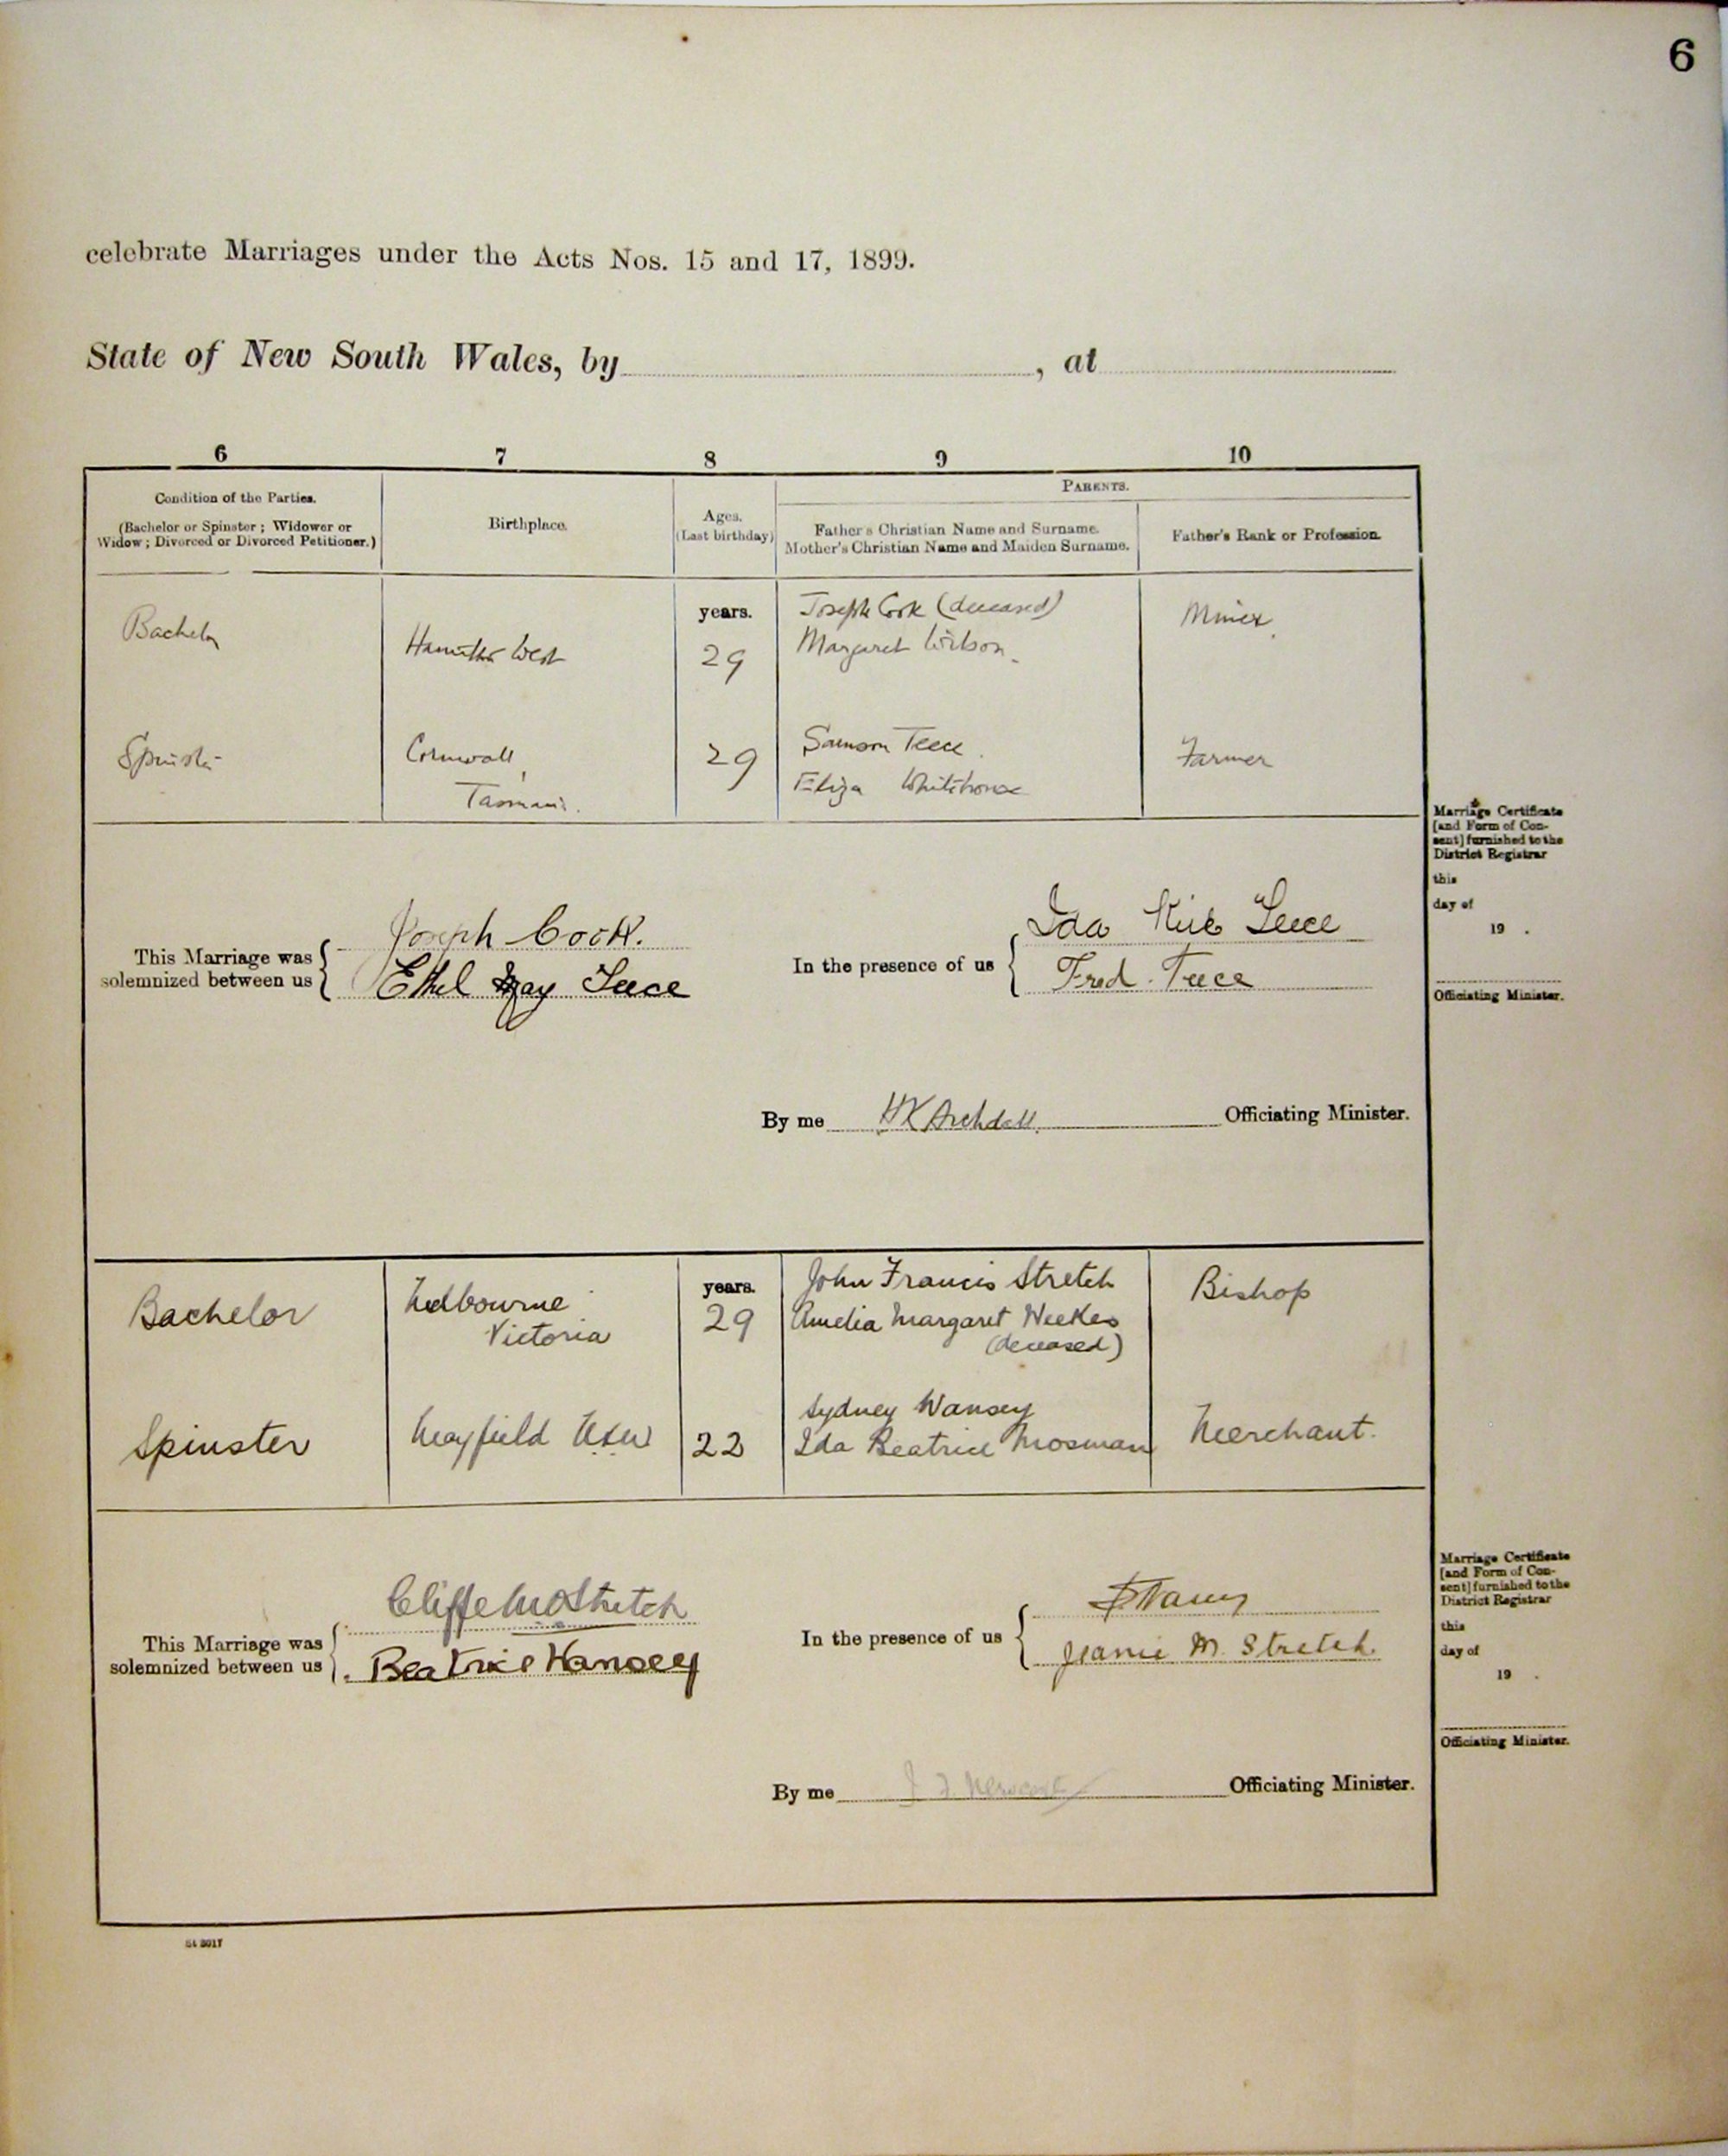 6
celebrate Marriages under the Acts Nos. 15 and 17, 1899.
State of New South Wales, by , at
6 7 8 9 10
Condition of the Parties.
(Bachelor or Spinster ; Widower or
Widow ; Divorced or Divorced Petitioner.)
Birthplace.
Ages.
(Last birthday)
PARENTS.
Father's Christian Name and Surname.
Mother's Christian Name and Maiden Surname.
Father's Rank or Profession.
Bachelor
Hamilton West
years.
29
Joseph Cook (deceased)
Margaret Wilson
Miner
Spinster
Cornwall,
Tasmania.
29
Samson Teece
Eliza Whitehouse
Farmer
This Marriage was
solemnized between us
Joseph Cook.
Ethel May Teece
In the presence of us
Ida Teece
Fred. Teece
By me H K Archdall Officiating Minister.
Marriage Certificate
[and Form of Con-
sent] furnished to the
District Registrar
this
day of
19 .
Officiating Minister.
Bachelor
Melbourne
Victoria
years.
29
John Francis Stretch
Amelia Margaret Weekes
(deceased)
Bishop
Spinster
Mayfield NSW
22
Sydney Wansey
Ida Beatrice Mosman
Merchant.
This Marriage was
solemnized between us
Cliffe Stretch
Beatrice Wansey
In the presence of us
Jeanie M. Stretch.
By me J. F. Newcastle Officiating Minister.
Marriage Certificate
[and Form of Con-
sent] furnished to the
District Registrar
this
day of
19 .
Officiating Minister.